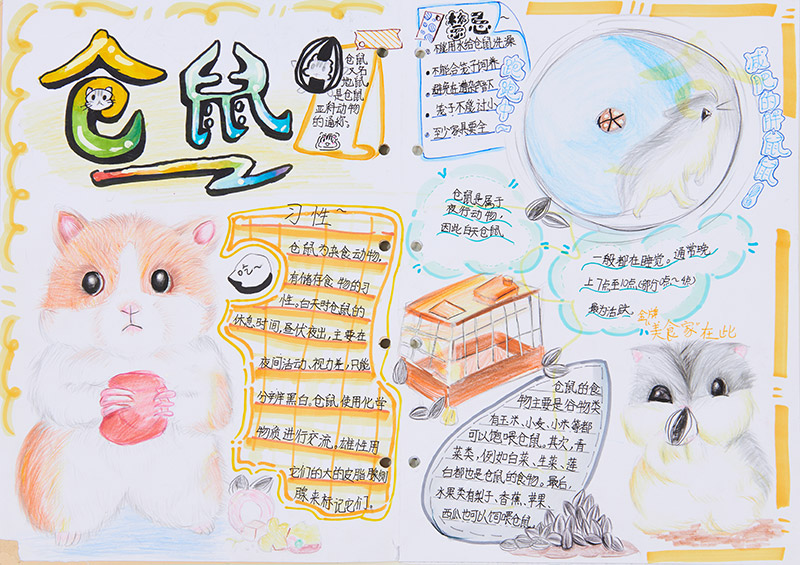 仓鼠
仓鼠
又名
地鼠
是仓鼠
亚科动物
的通称。
习性~
仓鼠为杂食动物,
有储存食物的习
性。白天时仓鼠的
休息时间,昼伏夜出,主要在
夜间活动、视力差,只能
分辨黑白。仓鼠使用化学
物质进行交流。雄性用
它们的大的皮脂腺侧
腺来标记它们。
禁忌
不能用水给仓鼠洗澡
不能合笼子饲养
避免在潮杂环下
笼子不能过小
至少家具要全
减肥的肝鼠鼠
仓鼠是属于
夜行动物,
因此白天仓鼠
一般都在睡觉。通常晚
上7点至10点
最为活跃
金牌
"美食家"在此
仓鼠的食
物主要是谷物类
有玉米、小麦、小米等都
可以饲喂仓鼠。其次,青
菜类,例如白菜、生菜、莲
白都也是仓鼠的食物。最后,
水果类有梨子、香蕉、苹果、
西瓜也可以饲喂仓鼠。